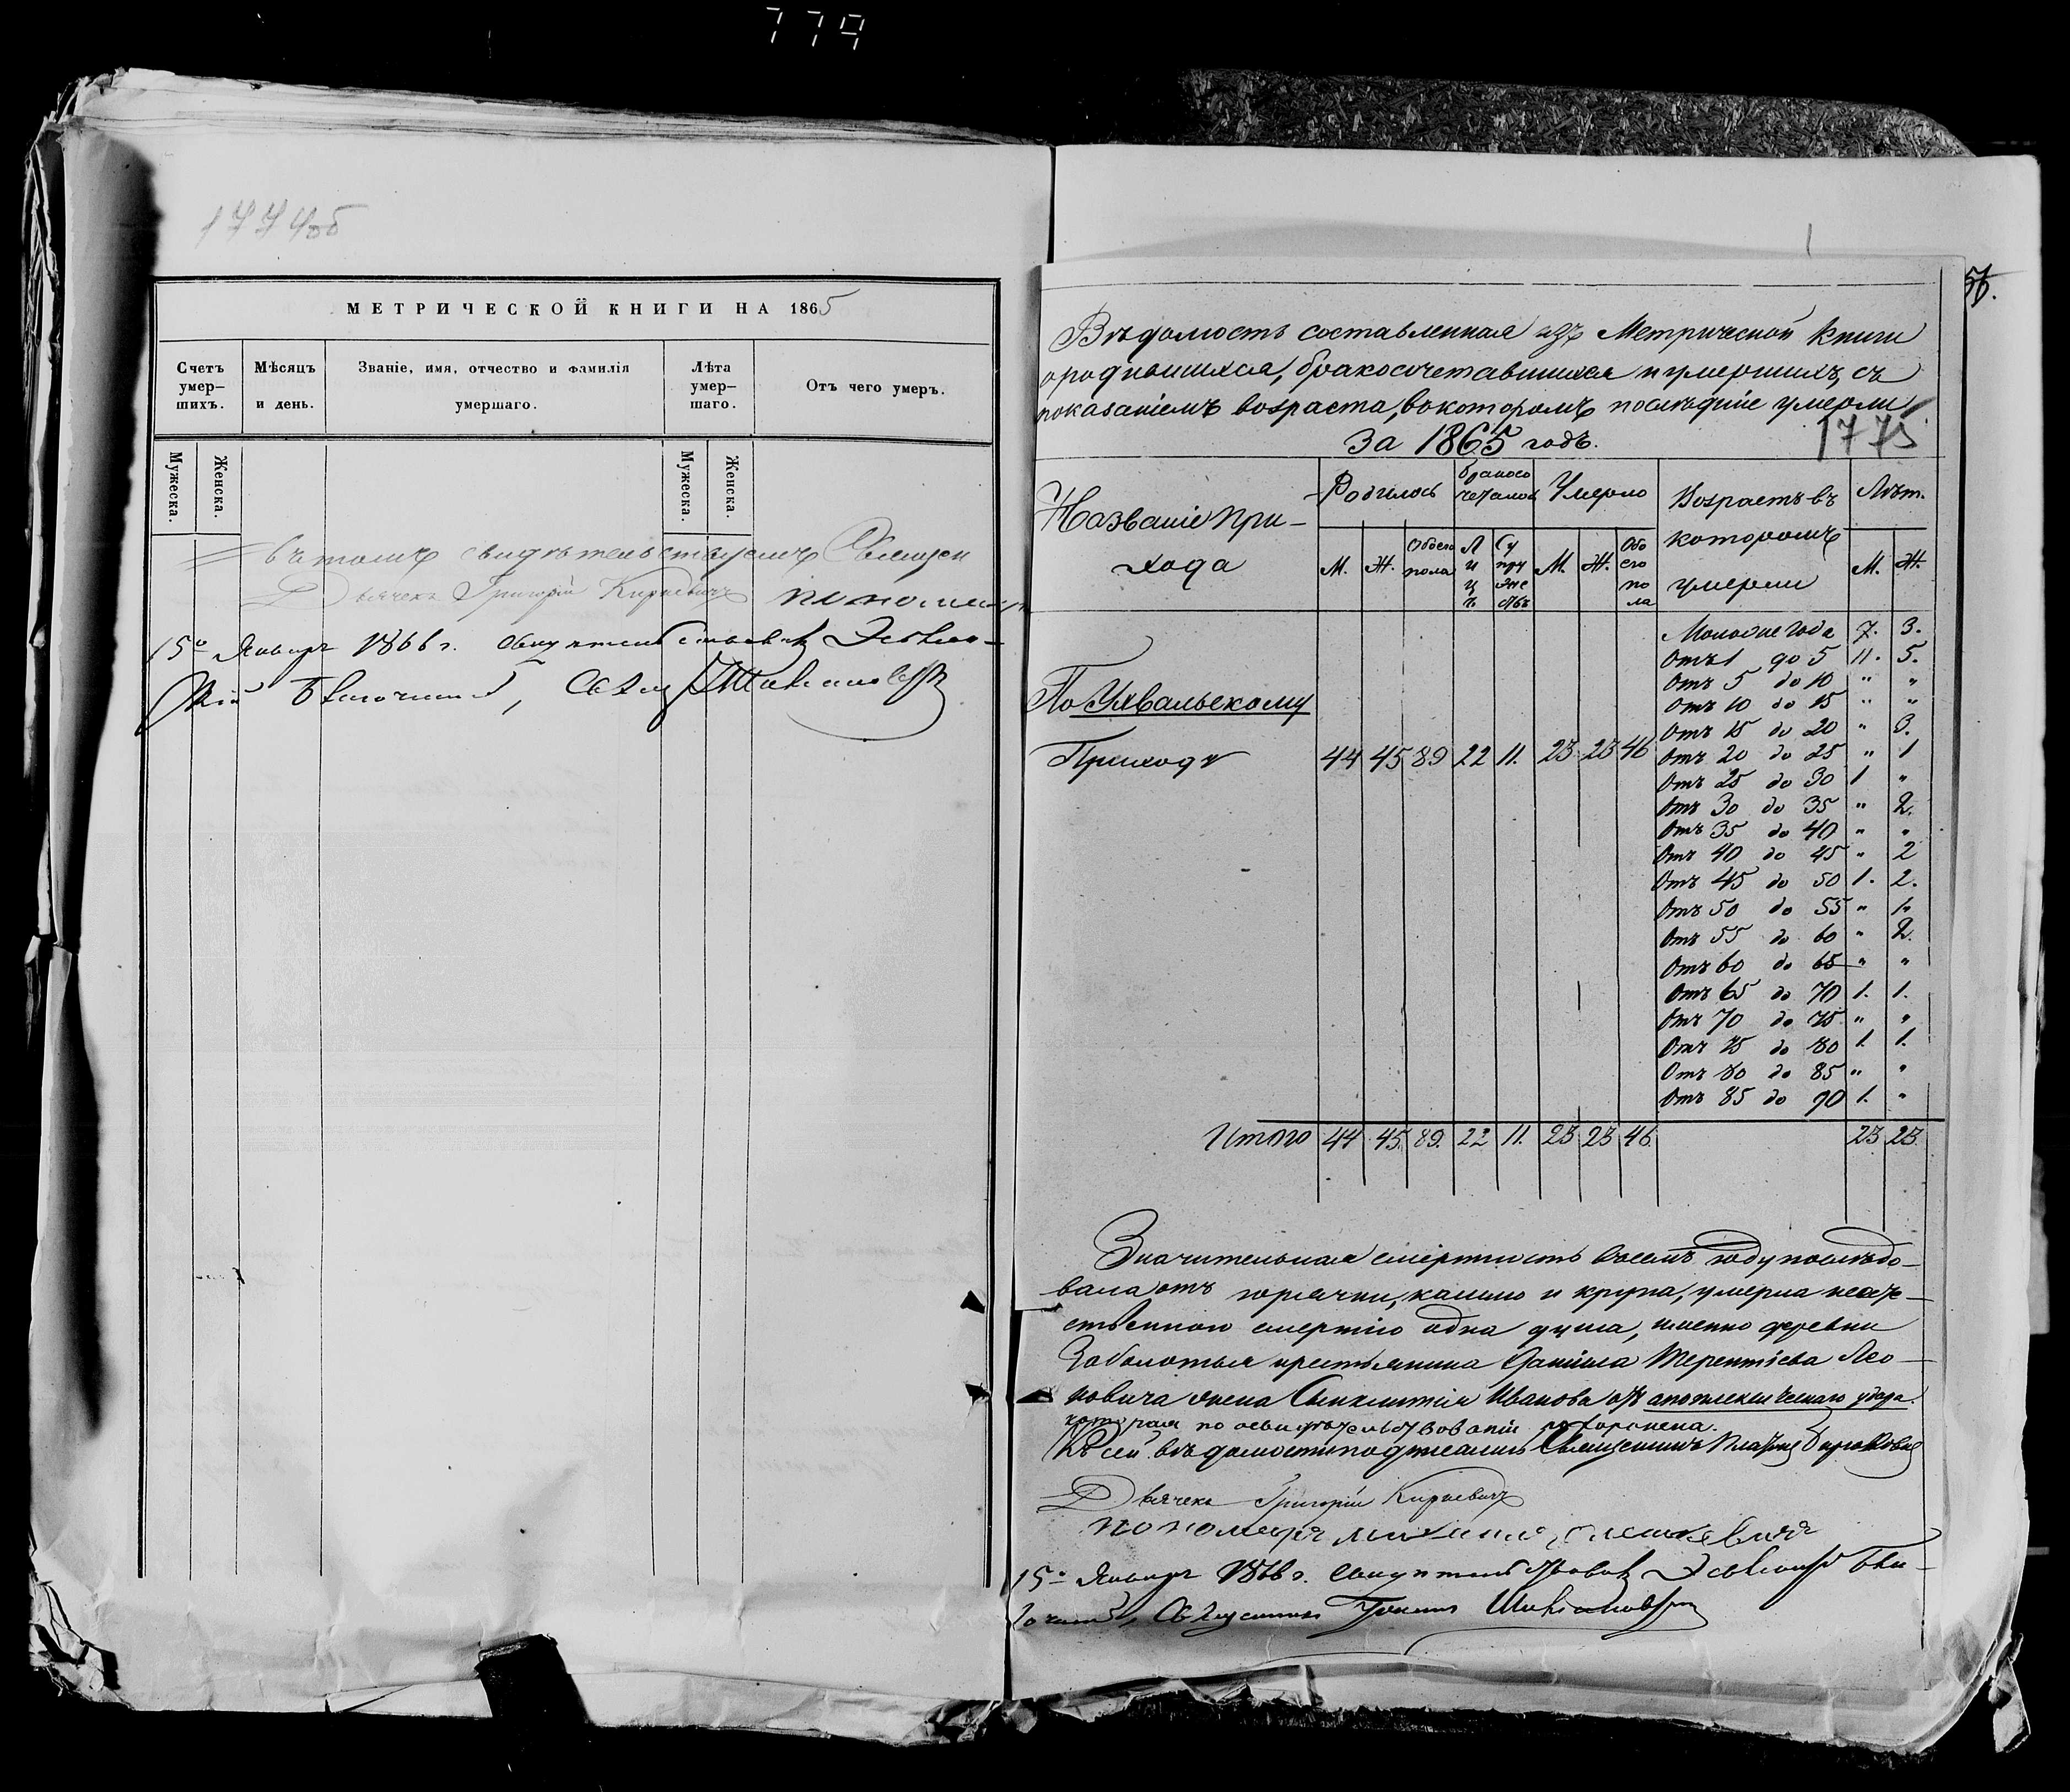 779
1774об
МЕТРИЧЕСКОЙ КНИГИ НА 1865
Счетъ умер-шихъ. Мѣсяцъ и день. Званіе, имя, отчество и фамилія умершаго. Лѣта умер-шаго. Отъ чего умеръ.
Мужеска. Женска. Мужеска. Женска.
Въ томъ свидѣтельствуемъ Священ
Дьячекъ Григорій Киркевичъ пономарь
15го Января 1866 г. свидѣтельствовалъ
Благочинный,
56.
Вѣдомость составленная изъ Метрической книги
о родившихся, бракосочетавшихся и умершихъ, съ
показаніемъ возраста, въ которомъ послѣдніе умерли,
за 1865 годъ.
1775
Названіе При-хода Родилось бракосочеталось Умерло Возрастъ въ которомъ умерли Лѣт.
М. Ж. Обоего пола Лицъ Супружествъ М. Ж. Обоего пола М. Ж.
Моложе года 7. 3.
Отъ 1 до 5 11. 5.
Отъ 5 до 10 " "
Отъ 10 до 15 " "
Отъ 15 до 20 " 3.
По Улвальскому
Приходу 44 45 89 22 11. 23 23 46 Отъ 20 до 25 " 1
Отъ 25 до 30 1 "
Отъ 30 до 35 " 2.
Отъ 35 до 40 " "
Отъ 40 до 45 " 2
Отъ 45 до 50 1. 2.
Отъ 50 до 55 " 1.
Отъ 55 до 60 " 2.
Отъ 60 до 65 " "
Отъ 65 до 70 1. 1.
Отъ 70 до 75 " "
Отъ 75 до 80 1. 1.
Отъ 80 до 85 " "
Отъ 85 до 90 1. "
Итого 44 45. 89. 22 11. 23 23 46. 23 23.
Значительная смертность въ семъ году послѣдо-
вала отъ горячки, кашлю и крупа, умерла неесте-
ственною смертію одна душа, именно деревни
Заболотья крестьянина Даніила Терентіева Лео-
новича жена Синклитія Иванова отъ апоплексическаго удара.
которая по освидѣтельствованіи похоронена.
Къ сей вѣдомости подписались Священникъ
Дьячекъ Григорій Киркевичъ
пономарь
15го Января 1866 г. свидѣтельствовалъ Бла-
гочинный, Священникъ